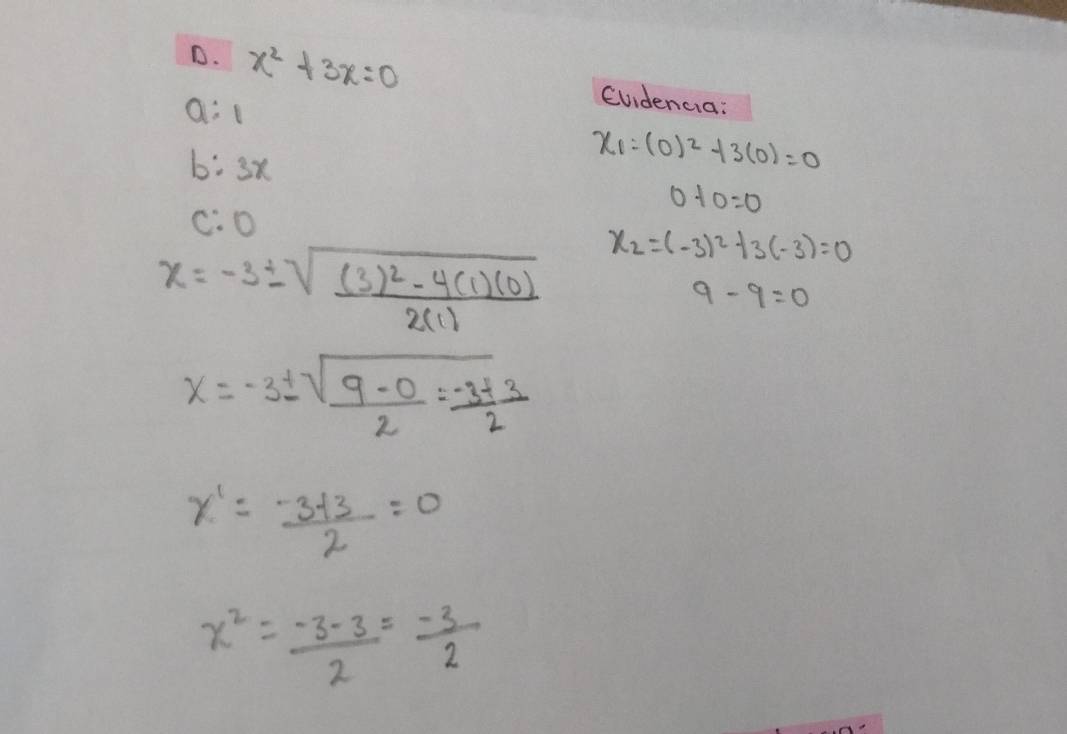 D. x² + 3x = 0
a: 1
b: 3x
c: 0
x = -3 ± √(3)² - 4(1)(0)
2(1)
x = -3 ± √9 - 0 = -3 ± 3
2 2
x' = -3+3 = 0
2
x² = -3-3 = -3
2 2
Evidencia:
x₁ = (0)² + 3(0) = 0
0 + 0 = 0
x₂ = (-3)² + 3(-3) = 0
9 - 9 = 0